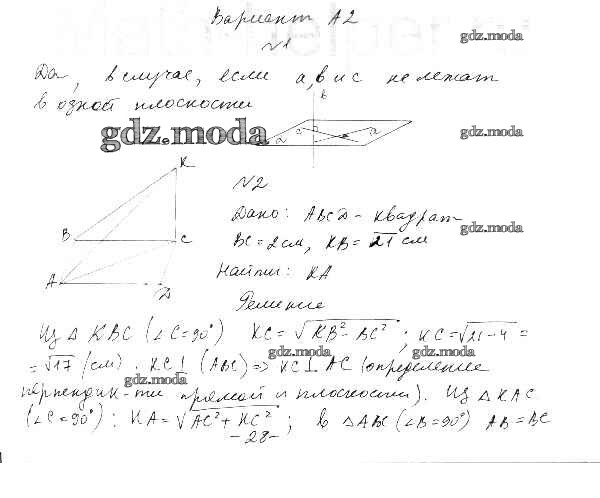 Вариант А2
gdz.moda
№1
Да, в случае, если a, b и c не лежат
в одной плоскости
b
gdz.moda
a
c
α
gdz.moda
K
№2
Дано: ABCD - квадрат
gdz.moda
B
C
BC = 2 см, KB = √21 см
Найти: KA
A
D
Решение
Из △ KBC (∠C=90°) KC = √KB² - BC² ; KC = √21 - 4 =
gdz.moda
gdz.moda
= √17 (см). KC ⊥ (ABC) => KC ⊥ AC (определение
gdz.moda
gdz.moda
перпендик-ти прямой и плоскости). Из △ KAC
(∠C = 90°): KA = √AC² + KC² ; в △ ABC (∠B = 90°) AB = BC
- 28 -